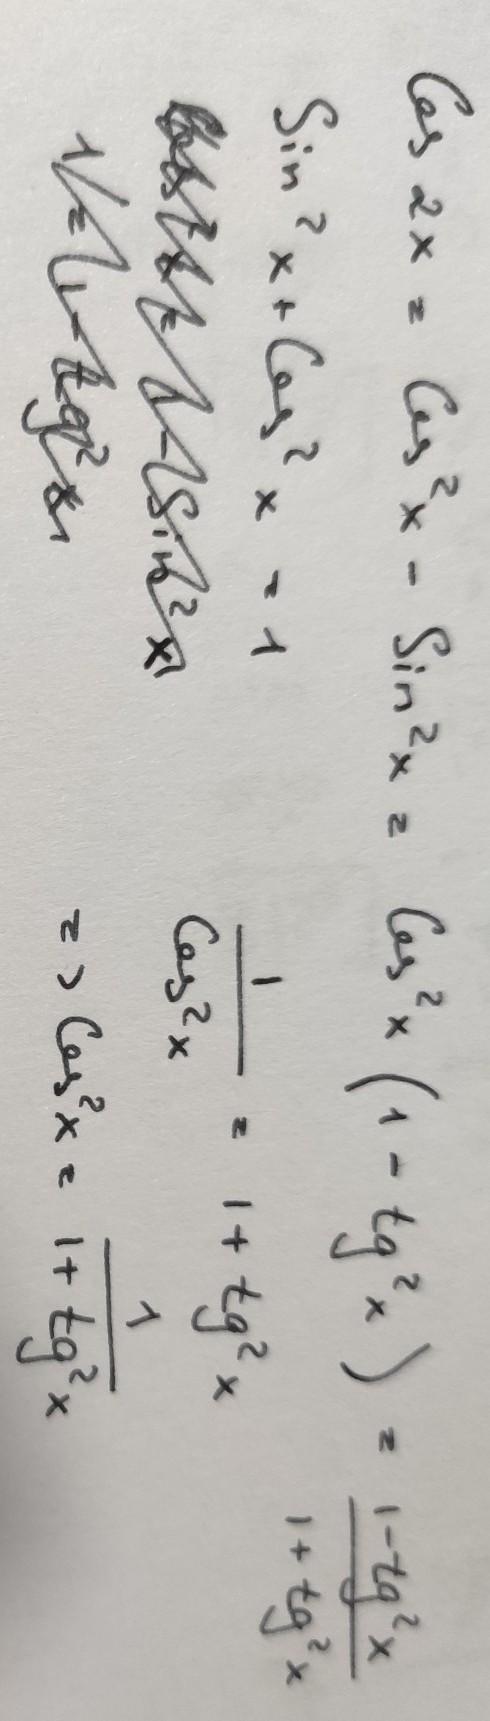 Cos 2x = Cos²x - Sin²x = Cos²x (1 - tg²x) = (1 - tg²x)/(1 + tg²x)
Sin²x + Cos²x = 1
1/Cos²x = 1 + tg²x
Cos²x = 1 - Sin²x
1 = 1 - tg²x
=> Cos²x = 1/(1 + tg²x)